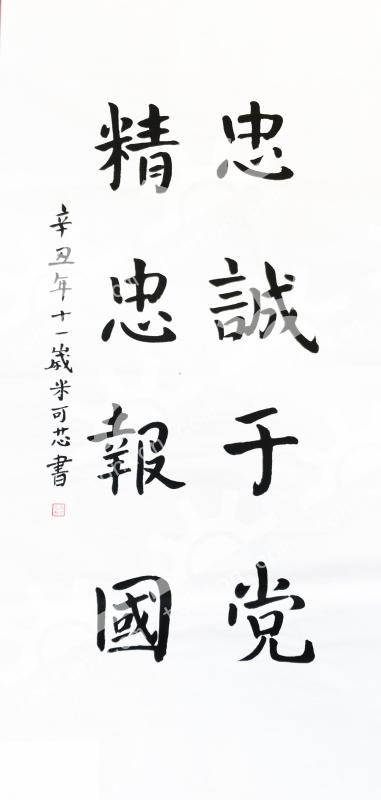 忠誠于党
精忠報國
辛丑年十一歲米可芯書